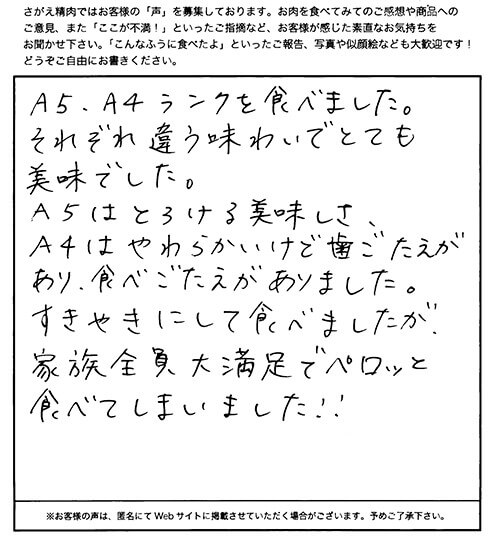 さがえ精肉ではお客様の「声」を募集しております。お肉を食べてみてのご感想や商品への
ご意見、また「ここが不満！」といったご指摘など、お客様が感じた素直なお気持ちを
お聞かせ下さい。「こんなふうに食べたよ」といったご報告、写真や似顔絵なども大歓迎です！
どうぞご自由にお書きください。
A5、A4ランクを食べました。
それぞれ違う味わいでとても
美味でした。
A5はとろける美味しさ、
A4はやわらかいけど歯ごたえが
あり、食べごたえがありました。
すきやきにして食べましたが、
家族全員大満足でペロッと
食べてしまいました!!
※お客様の声は、匿名にてWebサイトに掲載させていただく場合がございます。予めご了承下さい。